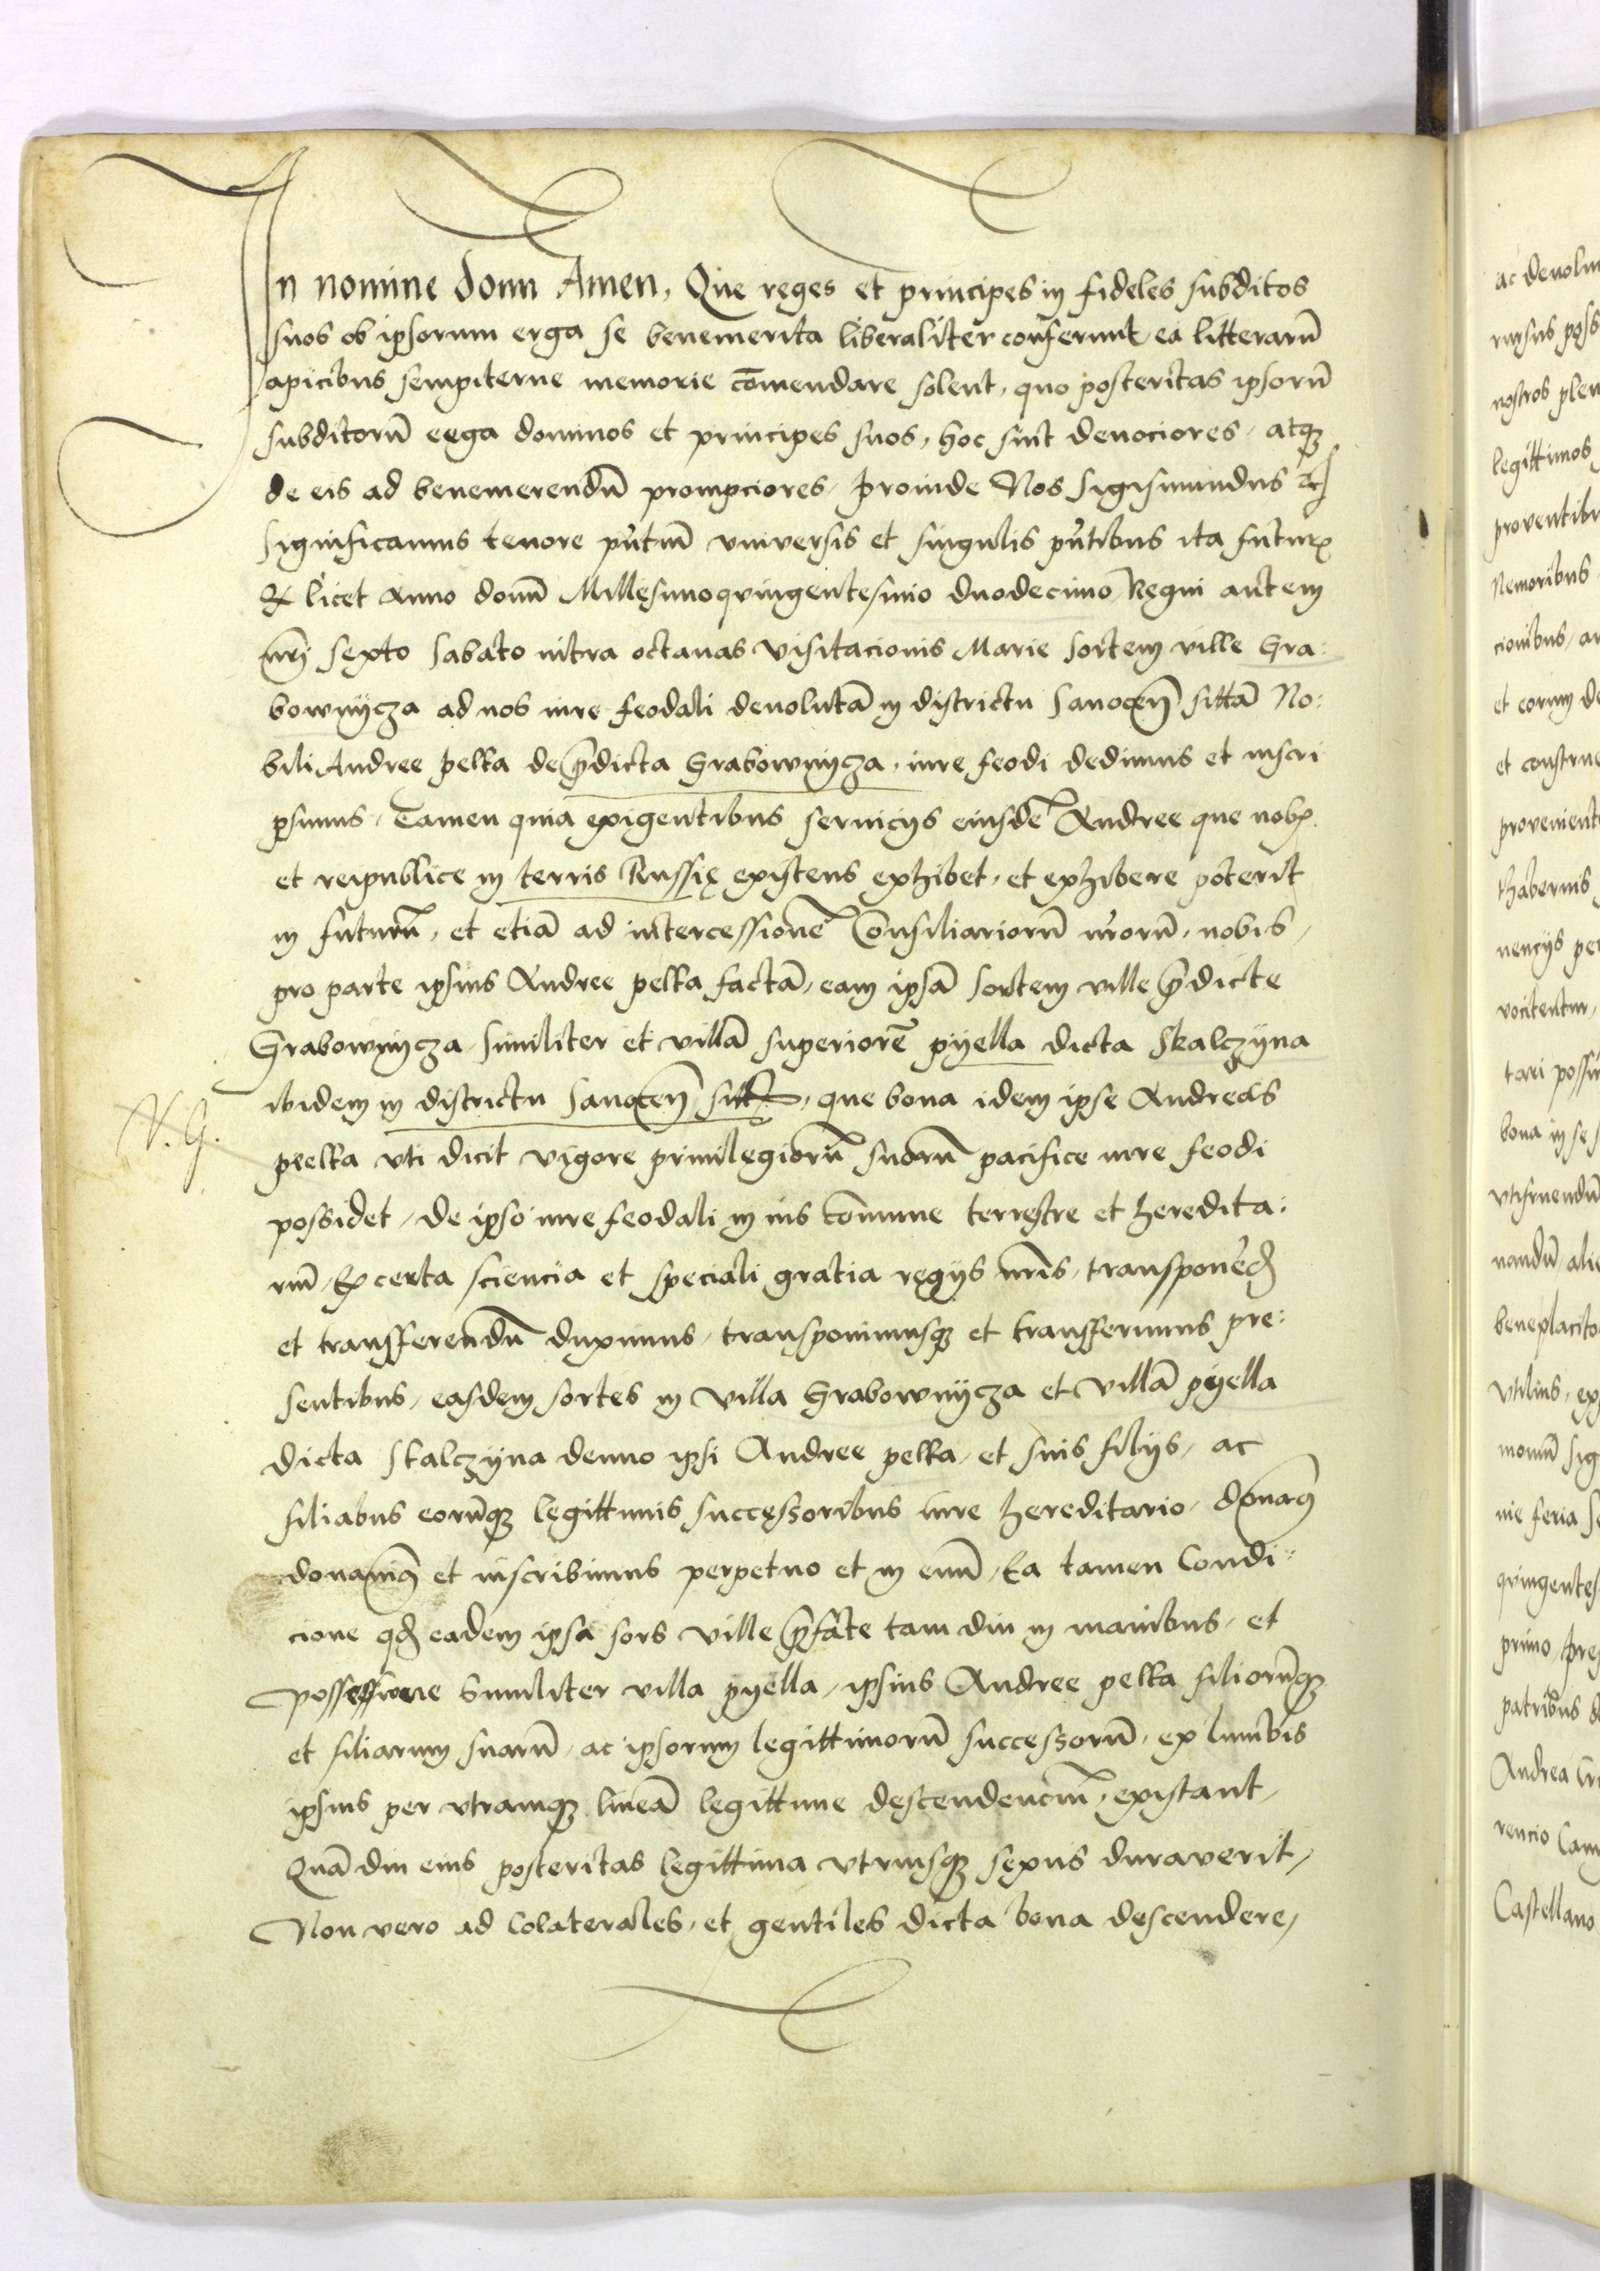 In nomine domi Amen, Que reges et principes in fideles subditos
suos ob ipsorum erga se benemerita liberaliter conferunt, ea litterarū
apicibus sempiterne memorie cōmendare solent, quo posteritas ipsorū
subditorū erga dominos et principes suos, hoc sint deuociores, atqȝ
de eis ad benemerendū prompciores, proinde Nos Sigismundus
Significamus tenore pñtium vniuersis et singulis pñtibus ita futur
licet Anno domī Millesimoquingentesimo duodecimo, Regni autem
nrī sexto Sabato intra octauas visitacionis Marie sortem ville Gra:
bownycza ad nos iure feodali deuolutā in districtu Sanocen̄ sittā No:
bili Andree pelka de p̄dicta Grabownycza, iure feodi dedimus et inscri
psimus, Tamen quia exigentibus seruicys eiusdē Andree que nob
et reipublice in terris Russię existens exhibet, et exhibere poterit
in futurū, et etiā ad intercessionē Consiliariorū nrorū, nobis,
pro parte ipsius Andree pelka factā, eam ipsā sortem ville p̄dicte
Grabownycza similiter et villā superiorē pyella dicta Skalczyna
ibidem in districtu Sanocen̄, que bona idem ipse Andreas
pelka vti dicit vigore priuilegiorū suorū pacifice iure feodi
possidet, de ipso iure feodali in ius cōmune terrestre et heredita:
riū, Ex certa sciencia et speciali gratia regys nrīs, transponēd
et transferendū duximus, transponimusqȝ et transferimus pre:
sentibus, easdem sortes in villa Grabownycza et villā pyella
dicta Skalczyna denuo ipsi Andree pelka, et suis filys, ac
filiabus eorūqȝ legittimis successoribus iure hereditario,
et inscribimus perpetuo et in euū, Ea tamen Condi:
cione qd eadem ipsa sors ville p̄fate tam diu in manibus, et
possessione Similiter villa pyella, ipsius Andree pelka filiorūqȝ
et filiarum suarū, ac ipsorum legittimorū successorū, ex lumbis
ipsius per vtramqȝ lineā legittime descendenciū, existant,
Quā diu eius posteritas legittima vtriusqȝ sexus durauerit,
Non vero ad colaterales, et gentiles dicta bona descendere,
N. G.
ac deuolu
rursus poss
nostros plen
legittimos
prouentibu
Nemoribus
cionibus, a
et eorum de
et constru
prouenient
thabernis
nencys pe
vocitentur,
tari possi
bona in se s
vtifruendū
nandū, alie
beneplacito
vtilius, ex
moniū sig
nie feria
quingentes
primo, pre
patribus
Andrea
rencio Cam
Castellano